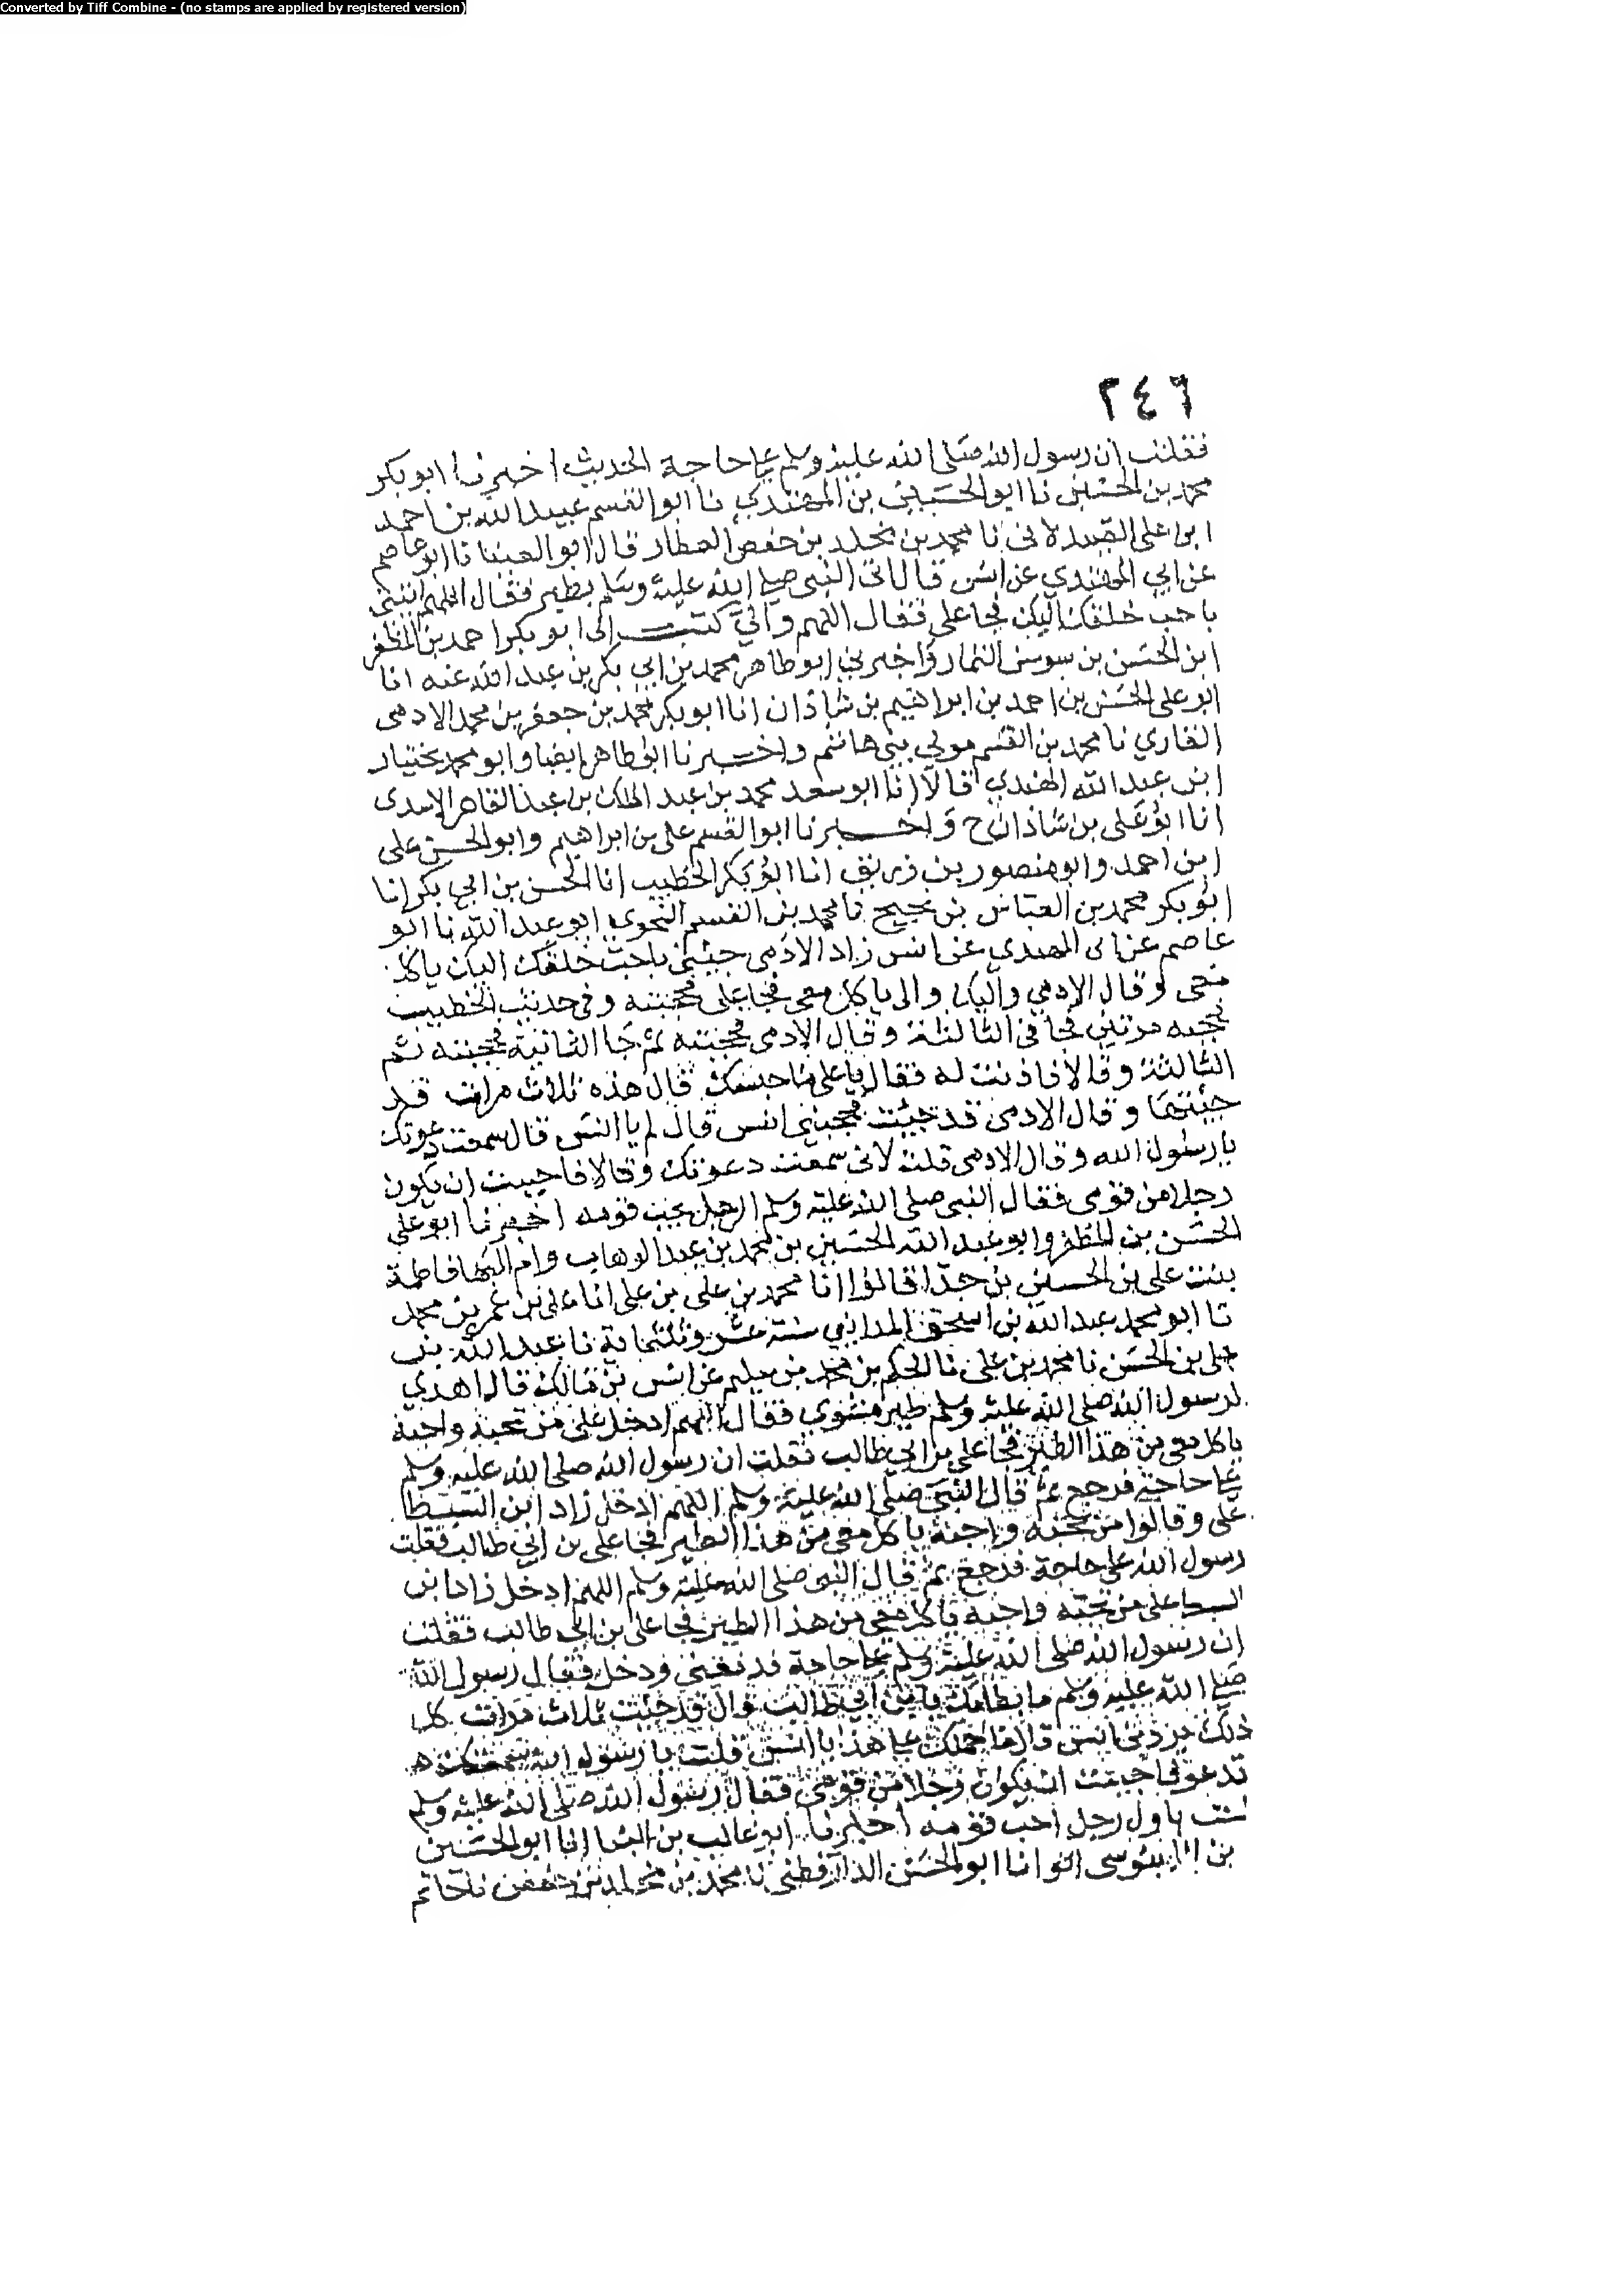 Converted by Tiff Combine - (no stamps are applied by registered version)
٢٤٦
فقلت ان رسول الله صلى الله عليه وسلم على حاجة الحديث اخبرنا ابو بكر
محمد بن الحسين نا ابو الحسين بن المهتدي نا ابو القسم عبيد الله بن احمد
ابن على الصيدلانى نا محمد بن مخلد بن حفص العطار قال ابو العينا نا ابو عاصم
عن ابي الهندي عن انس قال اتى النبى صلى الله عليه وسلم بطير فقال اللهم ائتنى
باحب خلقك اليك فجا على فقال اللهم والي كتب الى ابو بكر احمد بن المظفر
ابن الحسن بن سوسن التمار واخبرني ابو طاهر محمد بن ابي بكر بن عبد الله عنه انا
ابو على الحسن بن احمد بن ابراهيم بن شاذان انا ابو بكر محمد بن جعفر بن محمد الادمى
القاري نا محمد بن القسم مولى بنى هاشم واخبرنا ابو طاهر ايضا وابو محمد بختيار
ابن عبد الله الهندي قالا انا ابو سعد محمد بن عبد الملك بن عبد القاهر الاسدى
انا ابو على بن شاذان ح واخبرنا ابو القسم على بن ابراهيم وابو الحسن على
ابن احمد وابو منصور بن زريق انا ابو بكر الخطيب انا الحسن بن ابي بكر انا
ابو بكر محمد بن العباس بن نجيح نا محمد بن القسم النحوي ابو عبد الله نا ابو
عاصم عن ابى الهندى عن انس زاد الادمى جيئنى باحب خلقك اليك ياكل
معى وقال الادمي واليك والى ياكل معى فجا على فحجبته وفى حديث الخطيب
فحجبه مرتين فجا فى الثالثة وقال الادمى فحجبته ثم جا الثانية فحجبته ثم
الثالثة وقالا فاذنت له فقال يا على ما حبسك قال هذه ثلاث مرات قد
جئتها وقال الادمى قد جيئت فحجبني انس قال لم يا انس قال سمعت دعوتك
يا رسول الله وقال الادمى قلت لانى سمعت دعوتك وقالا فاحببت ان يكون
رجلا من قومى فقال النبى صلى الله عليه وسلم الرجل يحب قومه اخبرنا ابو على
الحسن بن المظفر وابو عبد الله الحسين بن محمد بن عبد الوهاب وام البها فاطمة
بنت على بن الحسين بن جدا قالوا انا محمد بن على بن على انا على بن عمر بن محمد
نا ابو محمد عبد الله بن اسحق المدايني سنة عشر وثلثماية نا عبد الله بن
على بن الحسن نا محمد بن على نا الحكم بن محمد بن سليم عن انس بن مالك قال اهدي
لرسول الله صلى الله عليه وسلم طير مشوي فقال اللهم ادخل على من تحبه واحبه
ياكل معى من هذا الطير فجا على بن ابي طالب فقلت ان رسول الله صلى الله عليه وسلم
على حاجة فرجع ثم قال النبى صلى الله عليه وسلم اللهم ادخل زاد ابن السبط
على وقالوا من تحبه واحبه ياكل معى من هذا الطير فجا على بن ابي طالب فقلت
رسول الله على حاجة فرجع ثم قال النبى صلى الله عليه وسلم اللهم ادخل زاد ابن
السبط على من تحبه واحبه ياكل معى من هذا الطير فجا على بن ابى طالب فقلت
ان رسول الله صلى الله عليه وسلم على حاجة فدفعنى ودخل فقال رسول الله
صلى الله عليه وسلم ما بطا بك يا بن ابي طالب قال قد جئت ثلاث مرات كل
ذلك يردنى انس قال ما حملك على هذا يا انس قلت يا رسول الله سمعتك
تدعو فاحببت ان يكون رجلا من قومى فقال رسول الله صلى الله عليه وسلم
لست باول رجل احب قومه اخبرنا ابو غالب بن البنا انا ابو الحسين
بن الابنوسى انا ابو الحسن الدارقطني نا محمد بن مخلد بن حفص نا حاتم